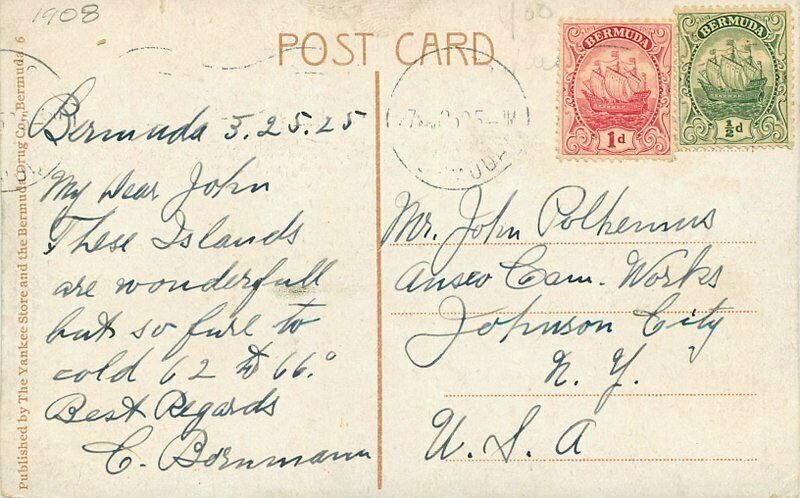 1908
POST CARD
BERMUDA
1d
BERMUDA
½d
Published by The Yankee Store and the Bermuda Drug Co., Bermuda 6
Bermuda 3.25.25
My Dear John
These Islands
are wonderfull
but so fure to
cold 62 to 66°
Best Regards
C. Bornmann
Mr. John Polhemus
Ansco Cam. Works
Johnson City
N. Y.
U. S. A